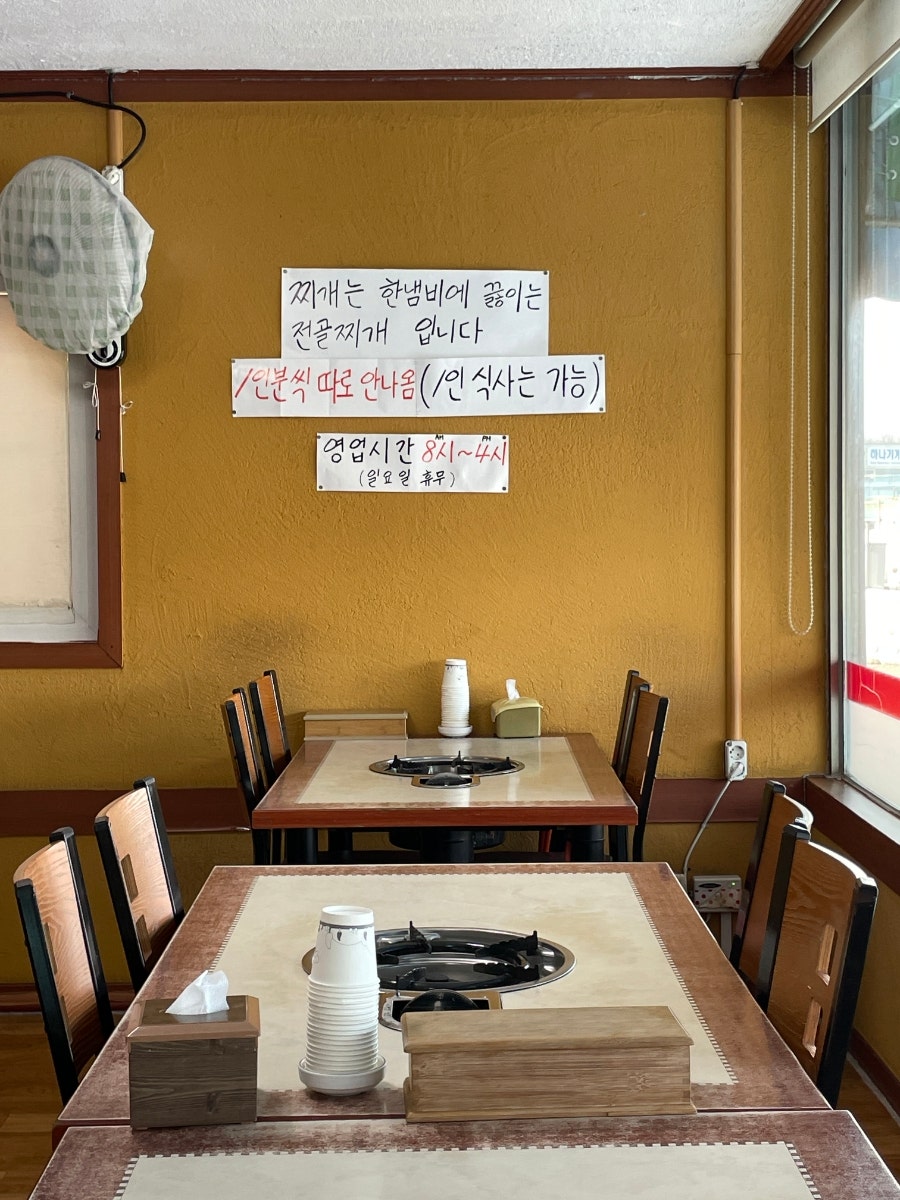 찌개는 한냄비에 끓이는
전골찌개 입니다
1인분씩 따로 안나옴(1인 식사는 가능)
AM PM
영업시간 8시~4시
(일요일 휴무)
하나기계